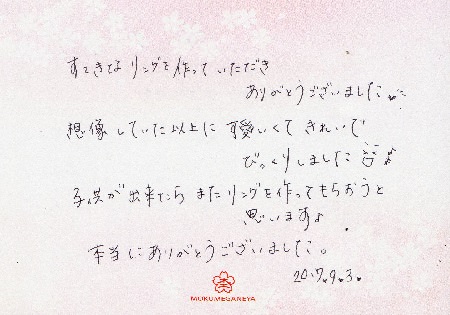 すてきな リングを作って いただき
ありがとうございました
想像していた以上に 可愛いくて きれいで
びっくりしました
子供が出来たら またリングを作ってもらおうと
思います♪
本当にありがとうございました。
2017.9.3.
MOKUMEGANEYA